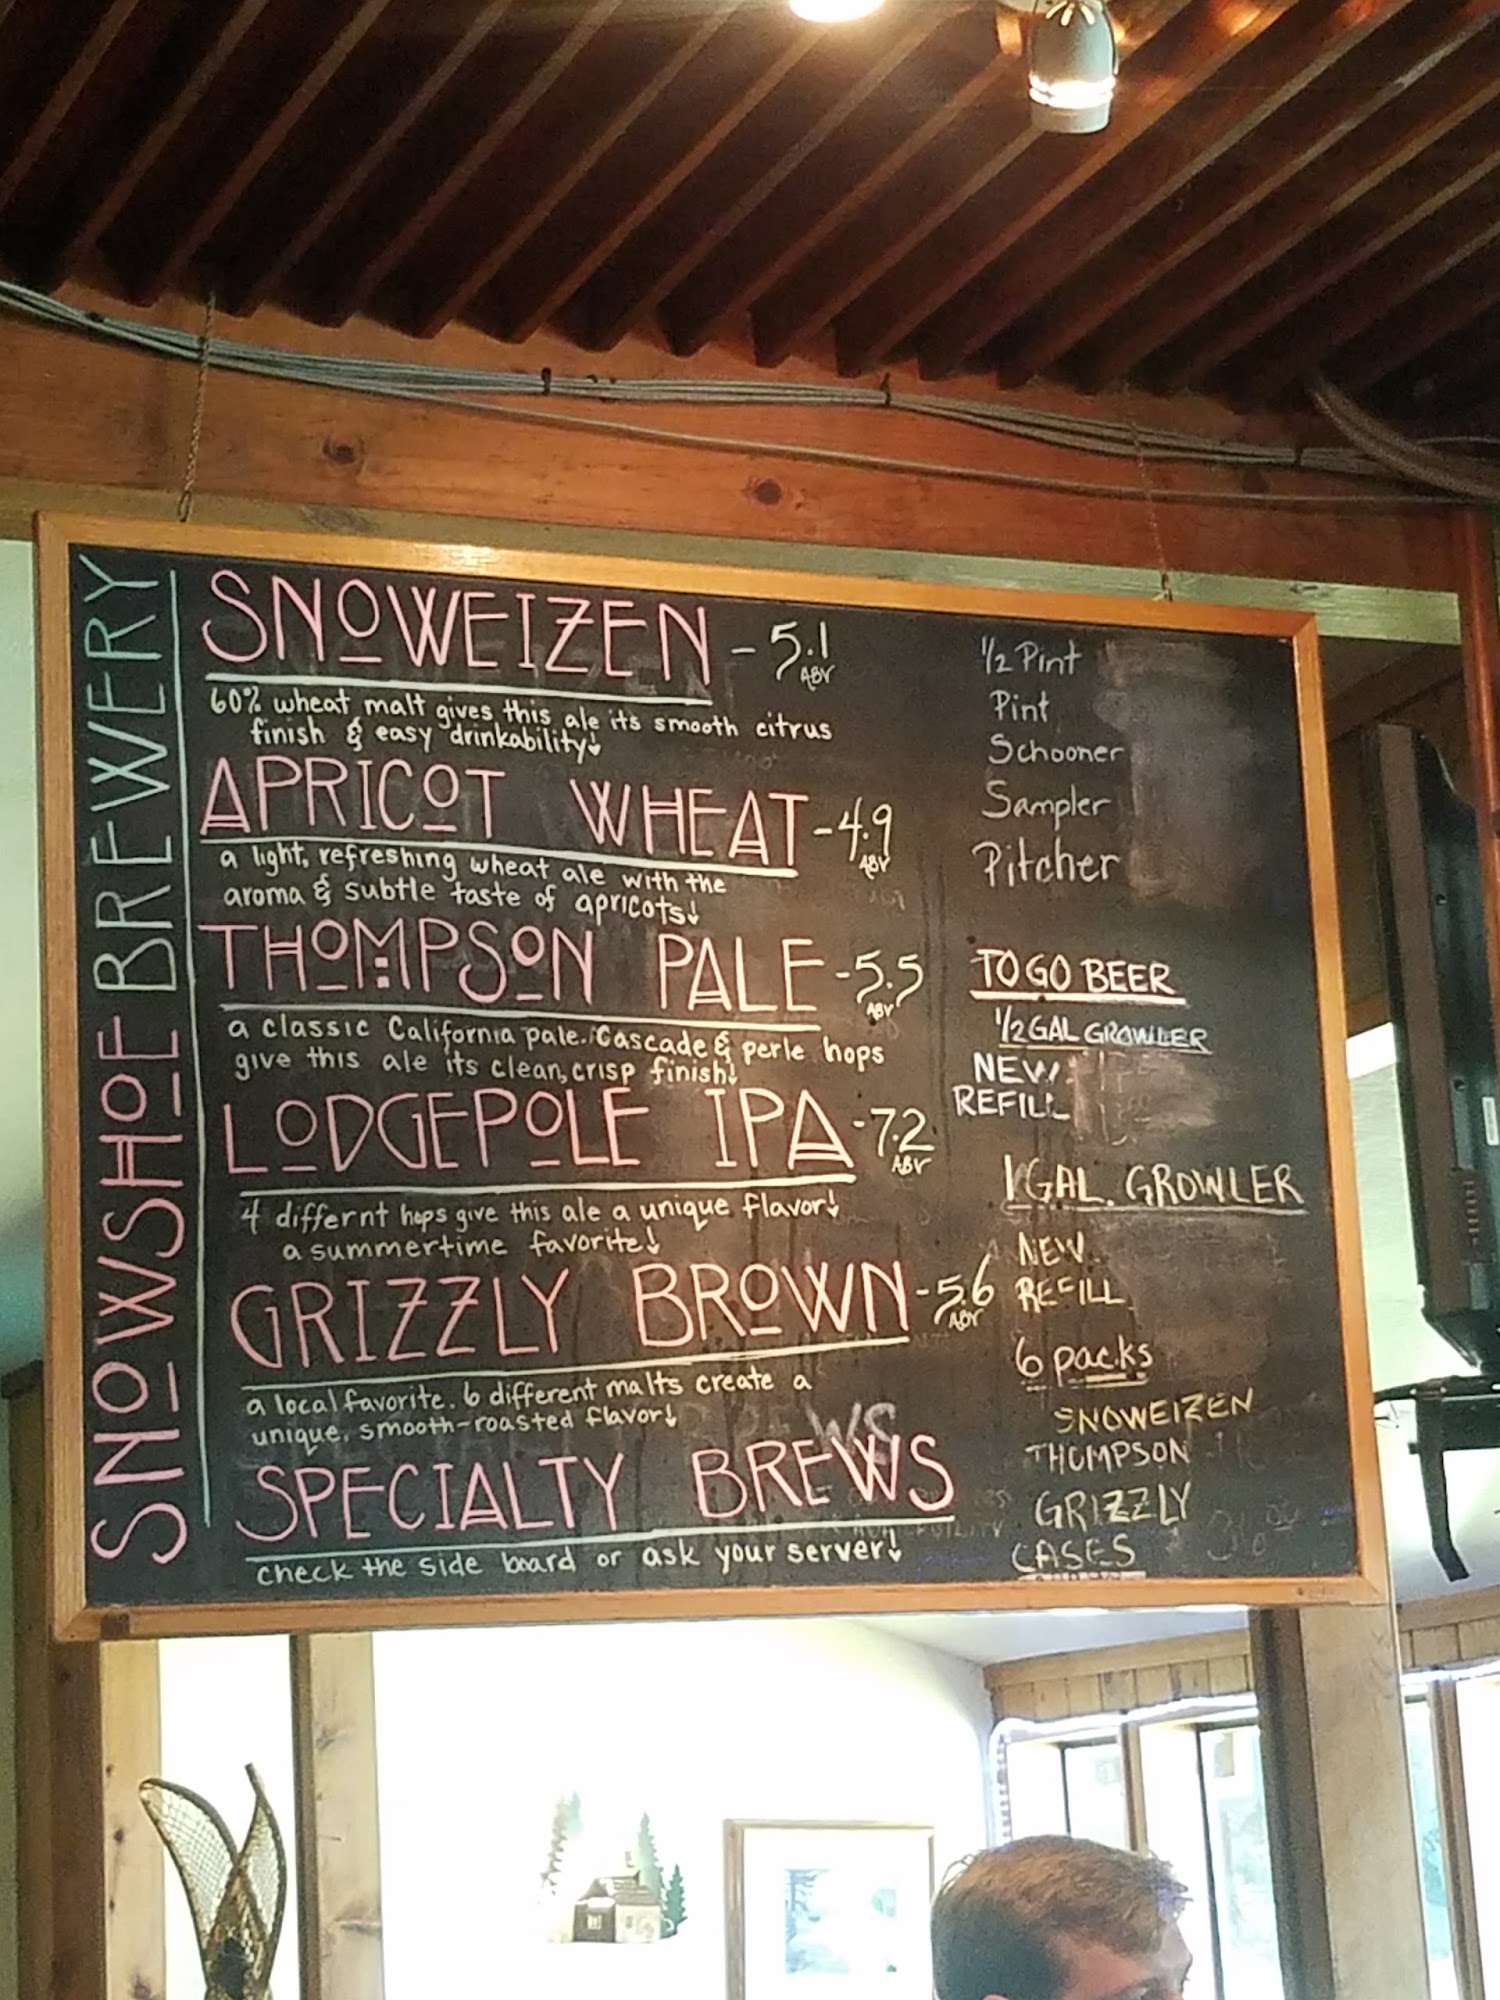 SNOWSHOE BREWERY
SNOWEIZEN - 5.1
ABV
60% wheat malt gives this ale its smooth citrus
finish & easy drinkability!
APRICOT WHEAT - 4.9
ABV
a light, refreshing wheat ale with the
aroma & subtle taste of apricots!
THOMPSON PALE - 5.5
ABV
a classic California pale. Cascade & perle hops
give this ale its clean, crisp finish!
LODGEPOLE IPA - 7.2
ABV
4 differnt hops give this ale a unique flavor!
a summertime favorite!
GRIZZLY BROWN - 5.6
ABV
a local favorite. 6 different malts create a
unique, smooth-roasted flavor!
SPECIALTY BREWS
check the side board or ask your server!
1/2 Pint
Pint
Schooner
Sampler
Pitcher
TO GO BEER
1/2 GAL GROWLER
NEW
REFILL
1 GAL. GROWLER
NEW
REFILL
6 packs
SNOWEIZEN
THOMPSON
GRIZZLY
CASES